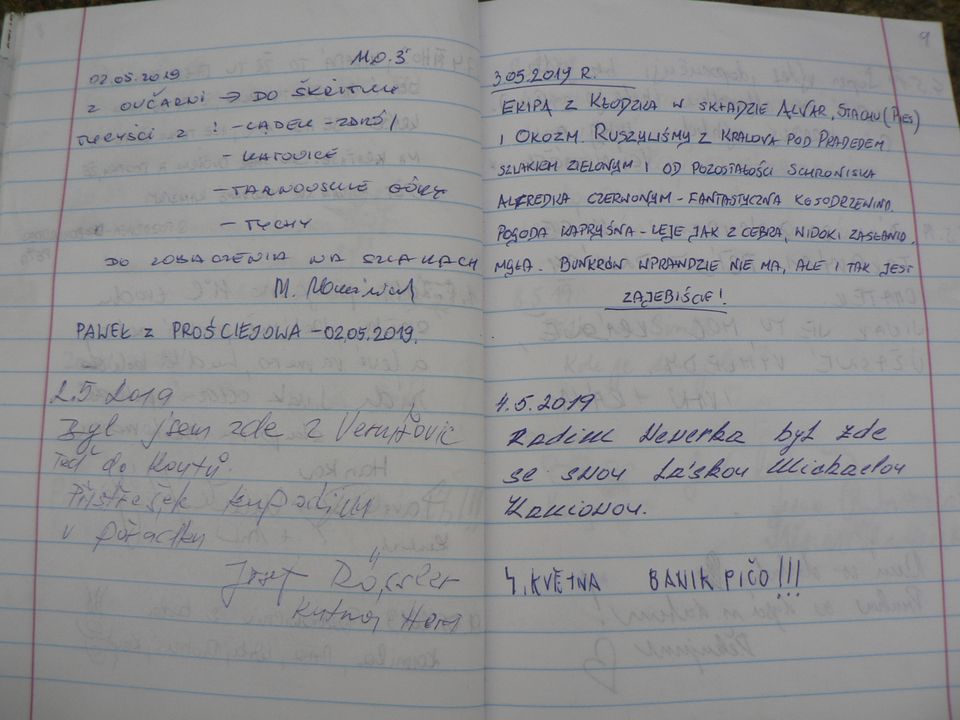 02.05.2019
Z OVČÁRNI → DO ŠKŘÍTKU
! - LADEK-ZDRÓJ
- KATOVICE
- TARNOWSKIE GÓRY
- TYCHY
DO ZOBACZENIA NA SZLAKACH
M.
PAWEŁ Z PROŚCIEJOWA - 02.05.2019.
2.5 2019
Byl jsem zde z Vernířovic
Teď do Koutů.
Přístřešek kupodivu
v pořádku
Josef Rössler
Kutná Hora
9
3 05.2019 R.
EKIPA Z KŁODZKA W SKŁADZIE ALVAR, STACHU (PIES)
I OKOZM. RUSZYLIŚMY Z KRALOVA POD PRADEDEM
SZLAKIEM ZIELONYM I OD POZOSTAŁOŚCI SCHRONISKA
ALFREDKA CZERWONYM - FANTASTYCZNA KOSODRZEWINA.
POGODA KAPRYŚNA - LEJE JAK Z CEBRA, WIDOKI ZASŁANIA
MGŁA. BUNKRÓW WPRAWDZIE NIE MA, ALE I TAK JEST
ZAJEBIŚCIE!
4.5.2019
Radim Neverka byl zde
se svou Láskou Michaelou
Kamionou.
4. KVĚTNA BANIK PIČO!!!